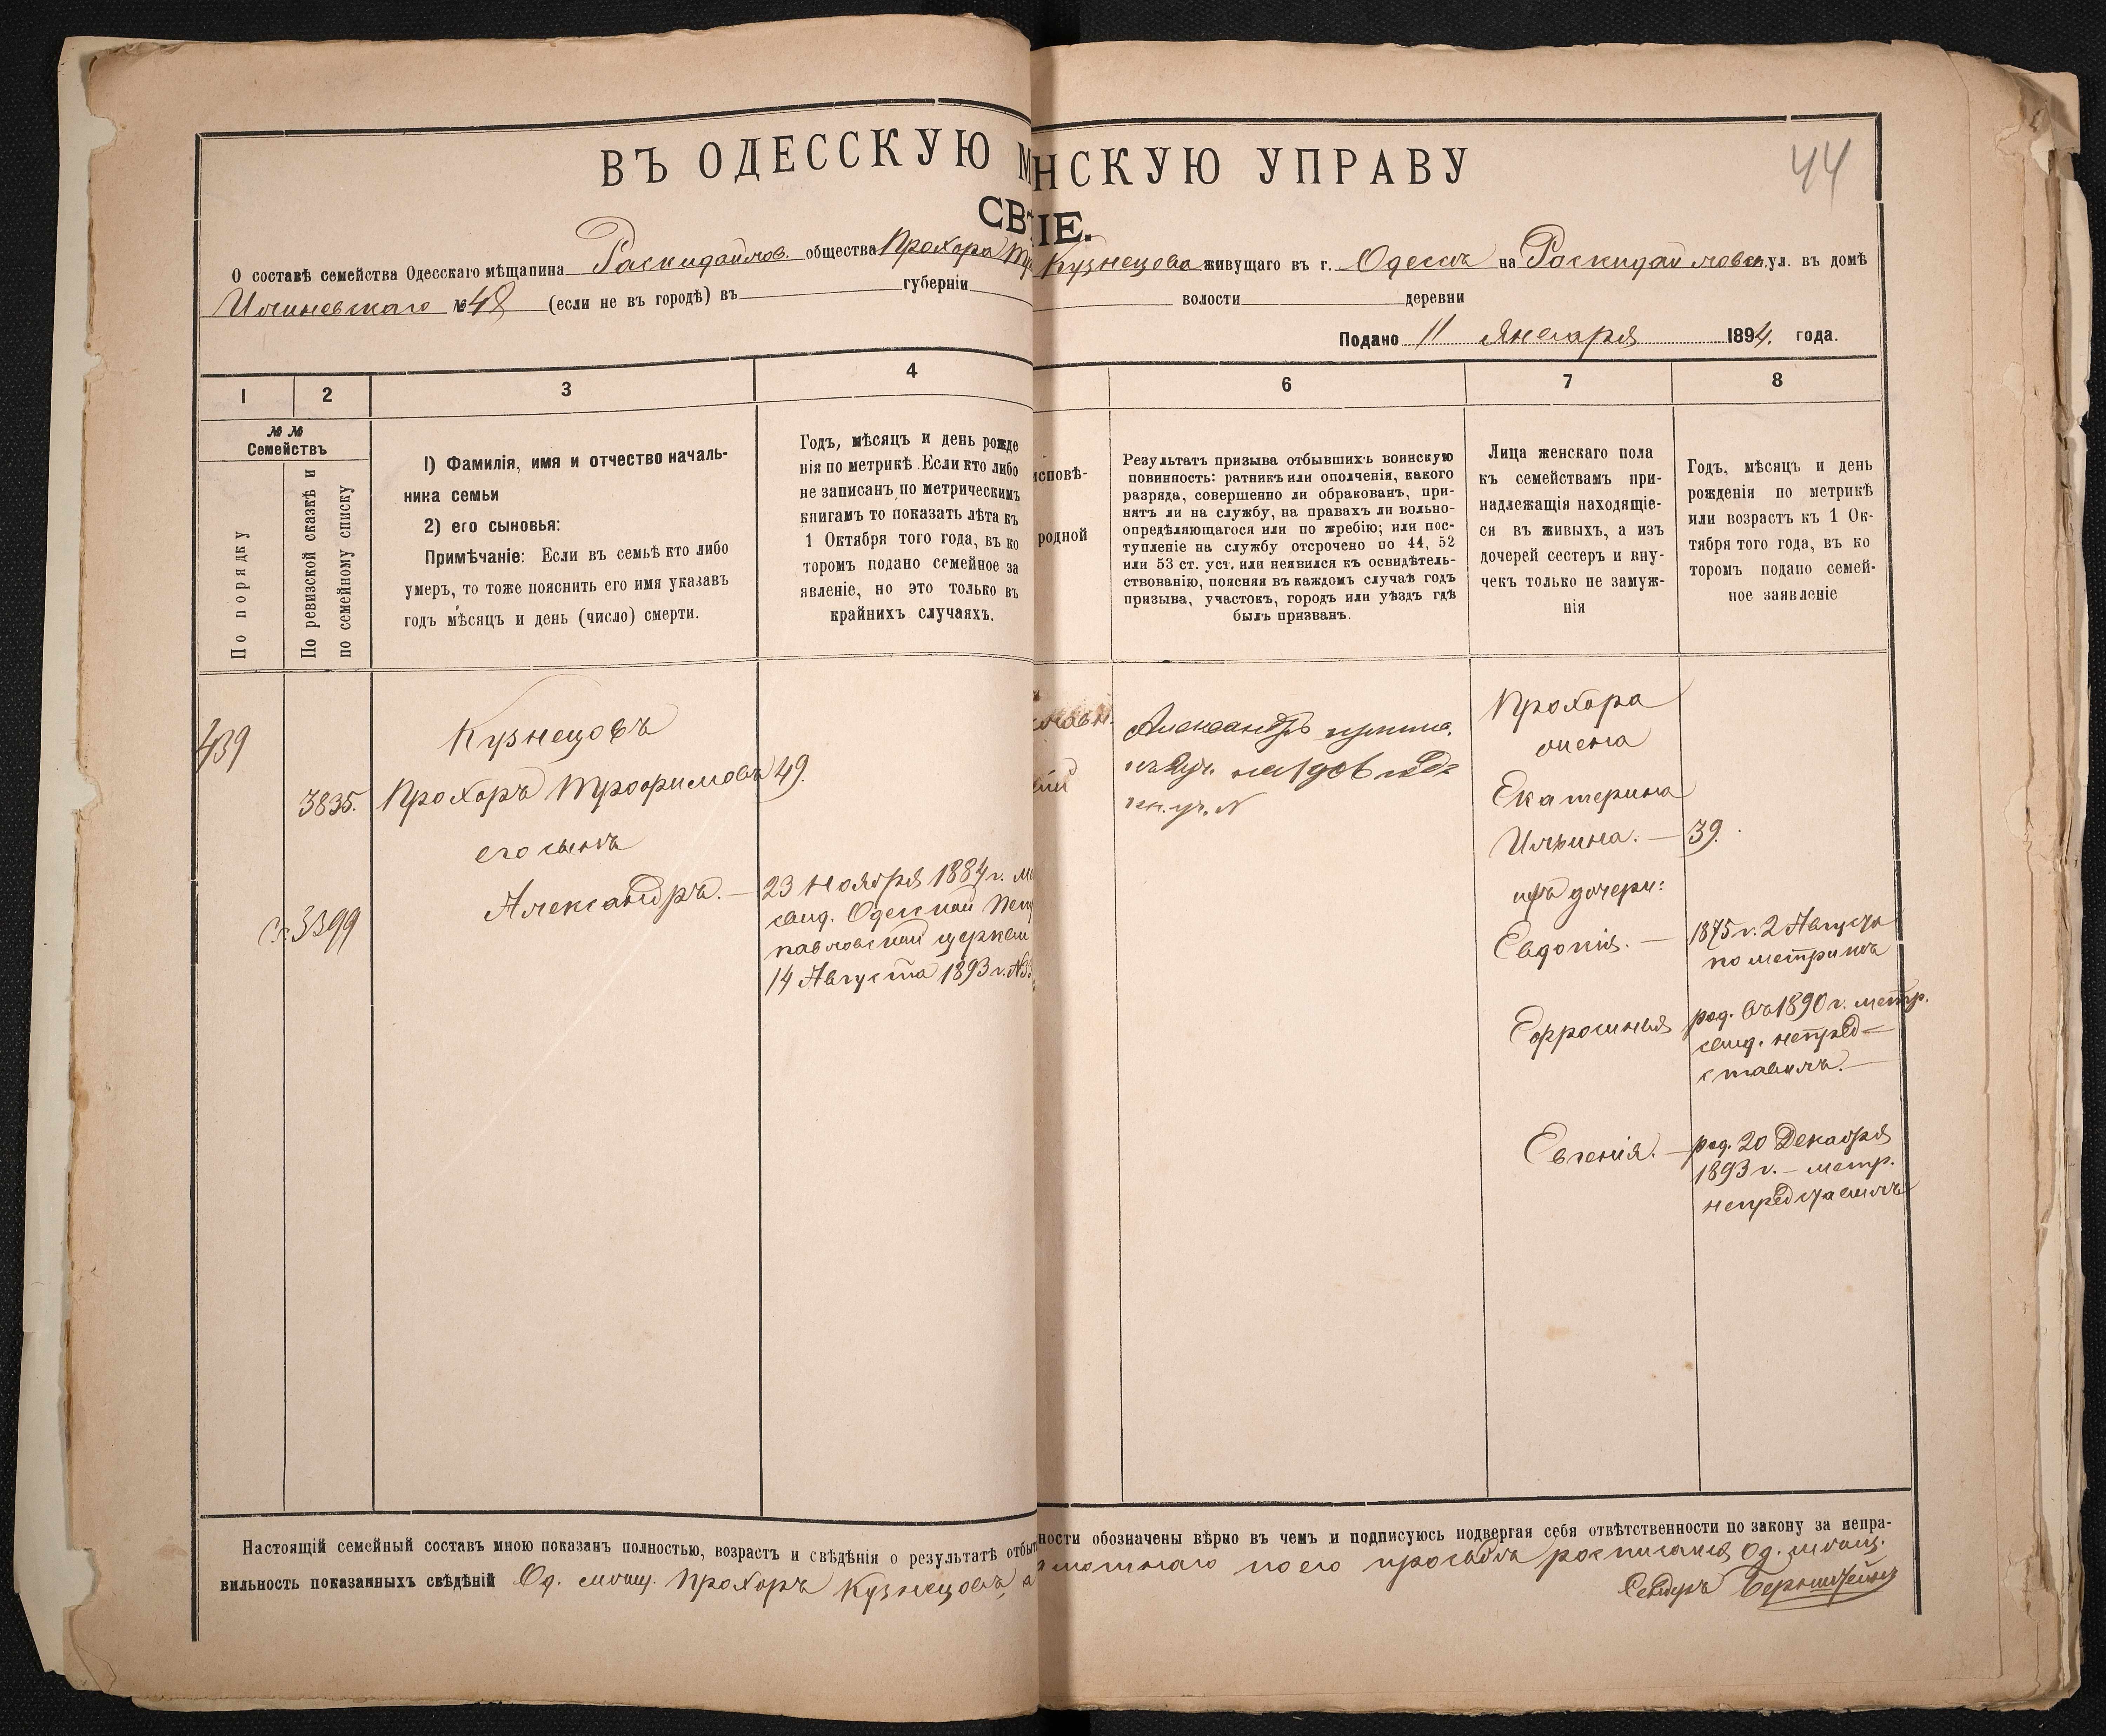 ВЪ ОДЕССКУЮ М НСКУЮ УПРАВУ
44
СВ ІЕ.
О составѣ семейства Одесскаго мѣщанина Раскидайлов. общества Прохора Тр Кузнецова живущаго въ г. Одессѣ на Раскидайловск. ул. въ домѣ
№ 48 (если не въ городѣ) въ губерніи волости деревни
Подано 11 Января 1894. года.
1 2 3 4 6 7 8
№ №
Семействъ
По порядку
По ревизской сказкѣ и
по семейному списку
1) Фамилія, имя и отчество началь-
ника семьи
2) его сыновья:
Примѣчаніе: Если въ семьѣ кто либо
умеръ, то тоже пояснить его имя указавъ
годъ мѣсяцъ и день (число) смерти.
Годъ, мѣсяцъ и день рожде
нія по метрикѣ Если кто либо
не записанъ по метрическимъ
книгамъ то показать лѣта къ
1 Октября того года, въ ко
торомъ подано семейное за
явленіе, но это только въ
крайнихъ случаяхъ.
исповѣ-
родной
Результатъ призыва отбывшихъ воинскую
повинность: ратникъ или ополченія, какого
разряда, совершенно ли обракованъ, при-
нятъ ли на службу, на правахъ ли вольно-
опредѣляющагося или по жребію; или пос-
тупленіе на службу отсрочено по 44, 52
или 53 ст. уст. или неявился къ освидѣтель-
ствованію, поясняя въ каждомъ случаѣ годъ
призыва, участокъ, городъ или уѣздъ гдѣ
былъ призванъ.
Лица женскаго пола
къ семействамъ при-
надлежащія находящіе-
ся въ живыхъ, а изъ
дочерей сестеръ и вну-
чекъ только не замуж-
нія
Годъ, мѣсяцъ и день
рожденія по метрикѣ
или возрастъ къ 1 Ок-
тября того года, въ ко
торомъ подано семей-
ное заявленіе
439
3835.
3399
Кузнецовъ
Прохоръ Трофимовъ 49.
его сынъ
Александръ. —
23 Ноября 1884 г. м
свид. Одесской Пет
павловской церкви
14 Августа 1893 г. №
Александръ
на 1906
Прохора
жена
Екатерина
Ильина. — 39.
ихъ дочери:
Евдокія. — 1875 г. 2 Августа
по метрикѣ
Ефросинья род. въ 1890 г. метр.
свид. непред-
ставилъ. —
Евгенія. — род. 20 Декабря
1893 г. — метр.
непредставилъ
Настоящій семейный составъ мною показанъ полностью, возрастъ и свѣдѣнія о результатѣ отбы ности обозначены вѣрно въ чемъ и подписуюсь подвергая себя отвѣтственности по закону за непра-
вильность показанныхъ свѣдѣній Од. мѣщ. Прохоръ Кузнецовъ, а мотнаго по его просьбѣ росписался Од. мѣщ.
Бернштейнъ